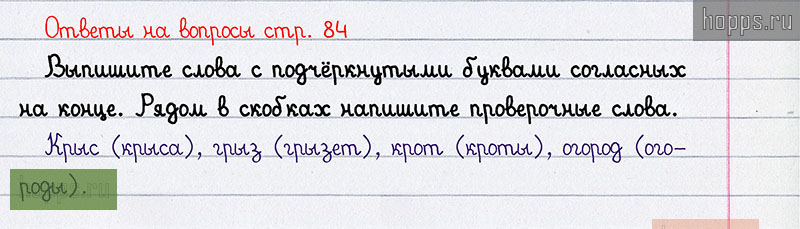 Ответы на вопросы стр. 84
hopps.ru
Выпишите слова с подчёркнутыми буквами согласных
на конце. Рядом в скобках напишите проверочные слова.
Крыс (крыса), грыз (грызет), крот (кроты), огород (ого-
роды).